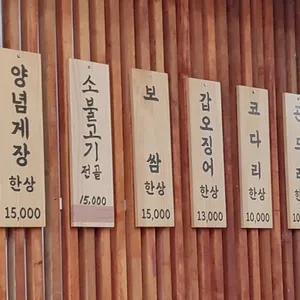 양념게장
한상
15,000
소불고기
전골
15,000
보쌈
한상
15,000
갑오징어
한상
13,000
코다리
한상
10,000